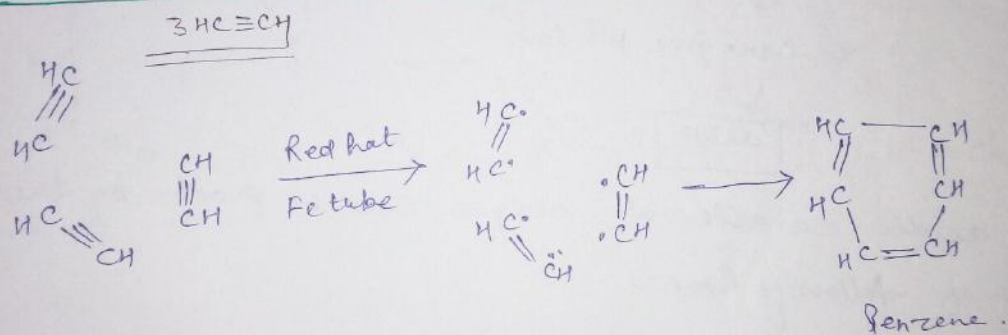 3HC≡CH
HC
HC
CH
CH
HC
CH
Red hot
Fe tube
HC•
HC•
•CH
•CH
HC•
CH
HC
CH
HC
CH
HC=CH
Benzene.